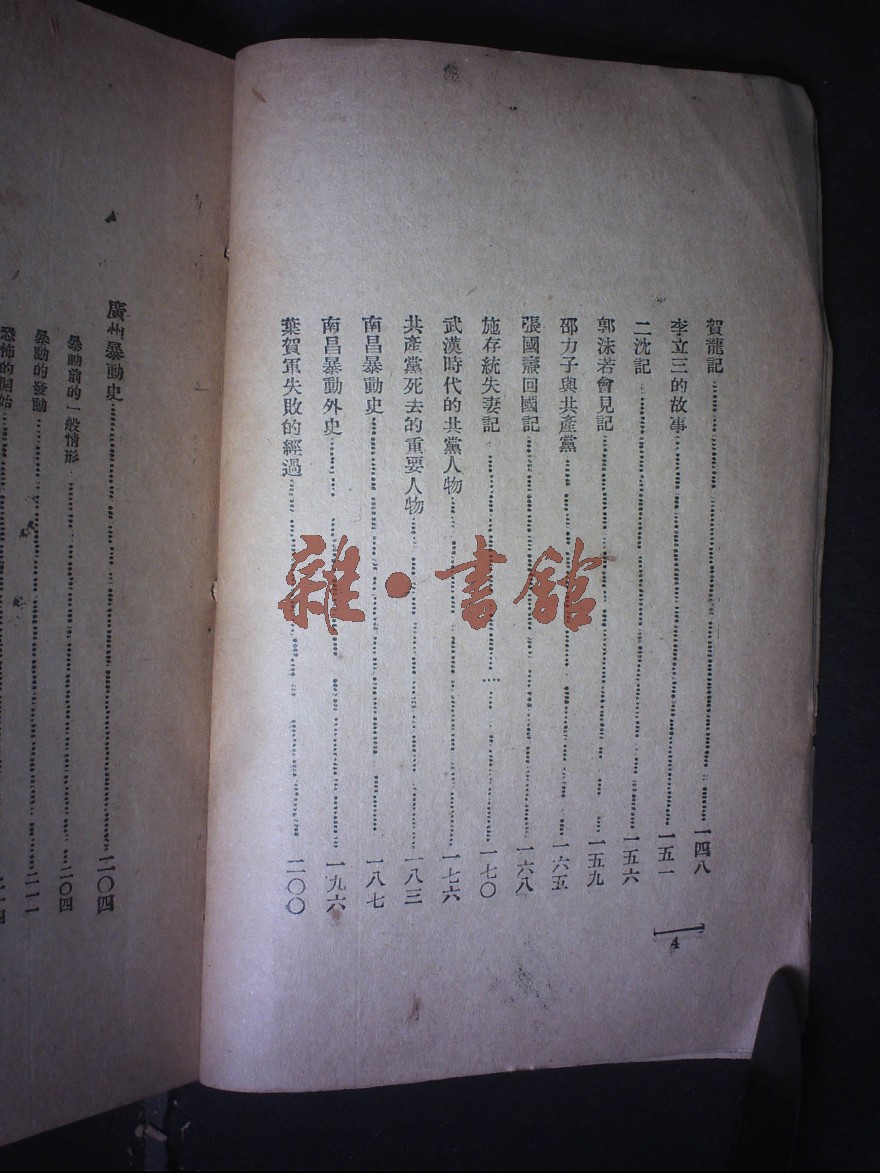 賀龍記……一四八
李立三的故事……一五一
二沈記……一五六
郭沫若會見記……一五九
邵力子與共產黨……一六五
張國燾回國記……一六八
施存統失妻記……一七〇
武漢時代的共黨人物……一七六
共產黨死去的重要人物……一八三
南昌暴動史……一八七
南昌暴動外史……一九六
葉賀軍失敗的經過……二〇〇
4
廣州暴動史……二〇四
暴動前的一般情形……二〇四
暴動的發動……二一一
恐怖的開始
雜·書館